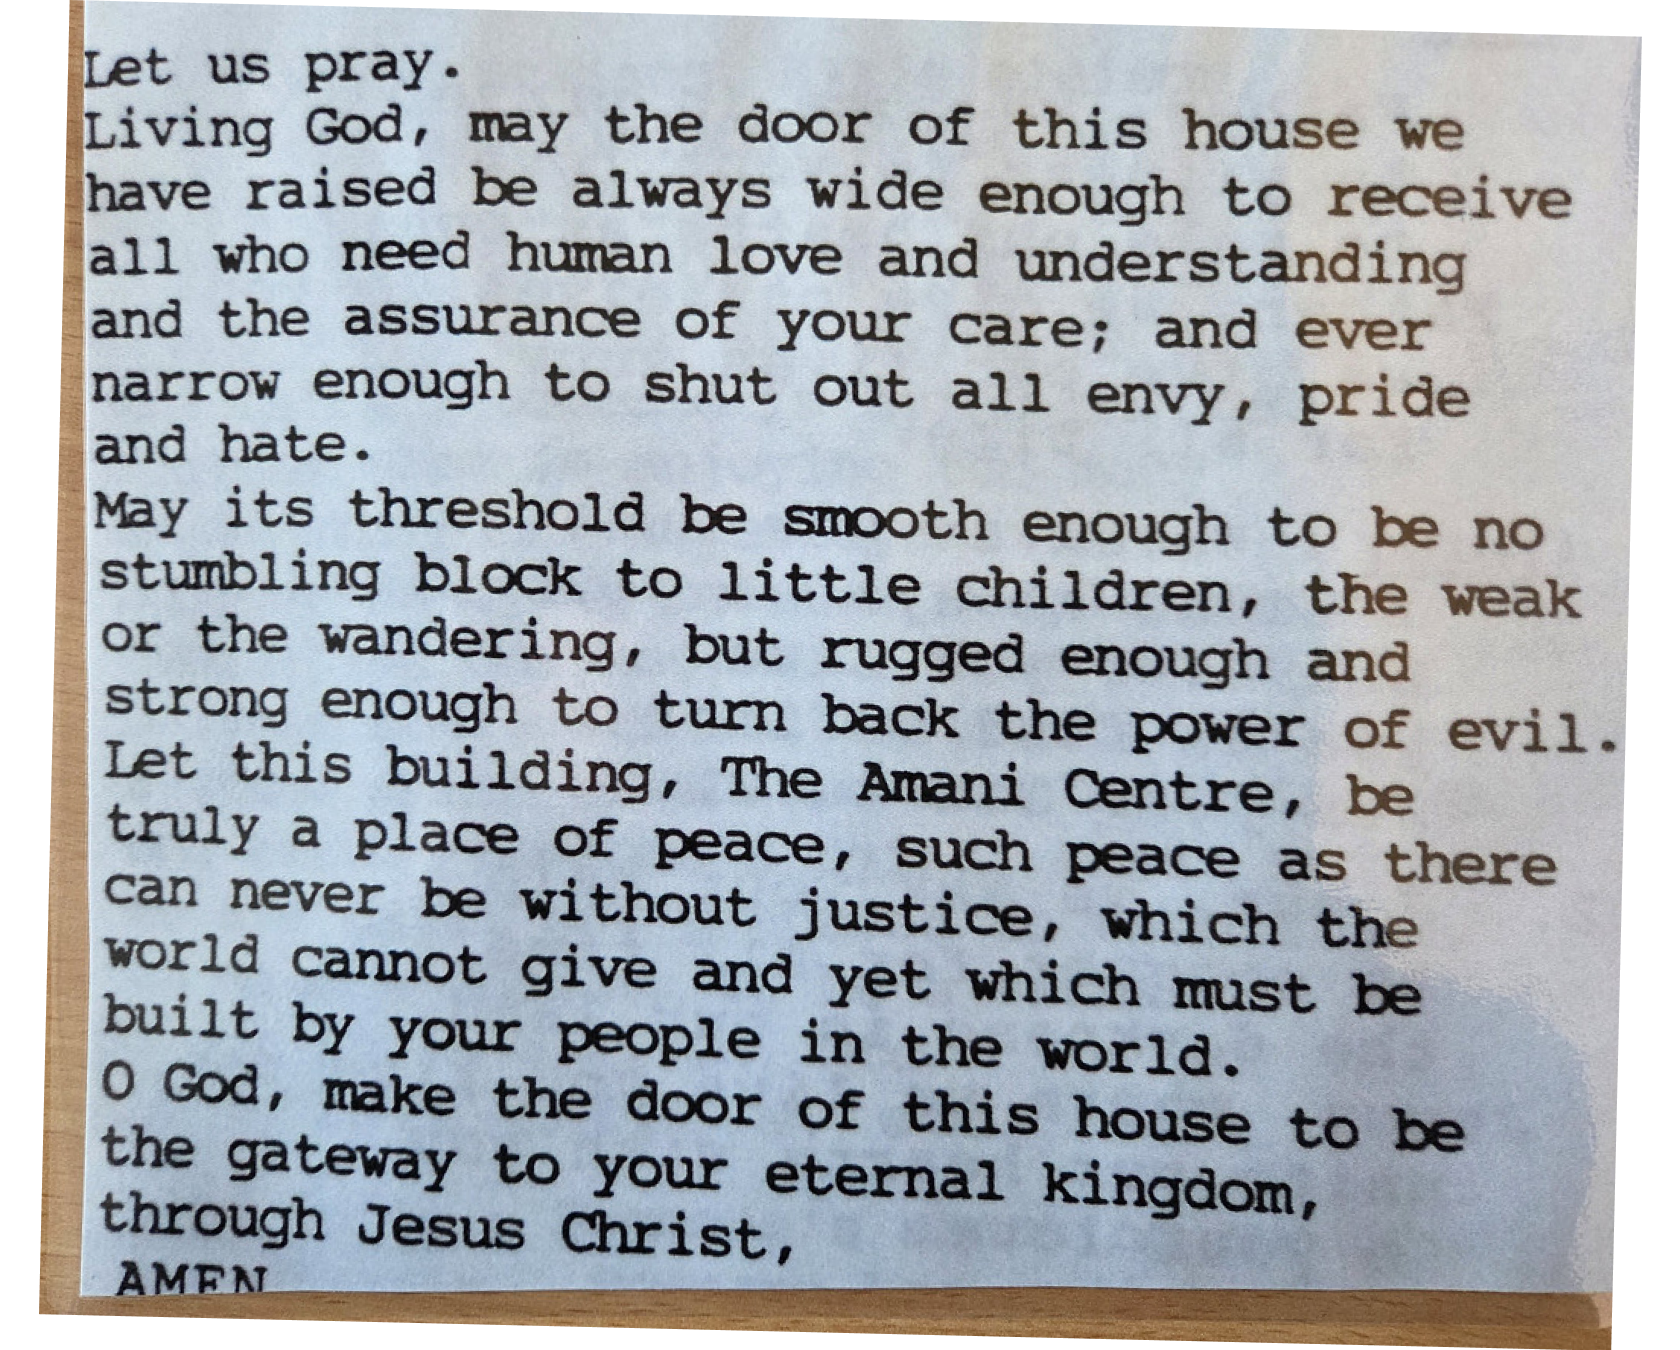 Let us pray.
Living God, may the door of this house we
have raised be always wide enough to receive
all who need human love and understanding
and the assurance of your care; and ever
narrow enough to shut out all envy, pride
and hate.
May its threshold be smooth enough to be no
stumbling block to little children, the weak
or the wandering, but rugged enough and
strong enough to turn back the power of evil.
Let this building, The Amani Centre, be
truly a place of peace, such peace as there
can never be without justice, which the
world cannot give and yet which must be
built by your people in the world.
O God, make the door of this house to be
the gateway to your eternal kingdom,
through Jesus Christ,
AMEN